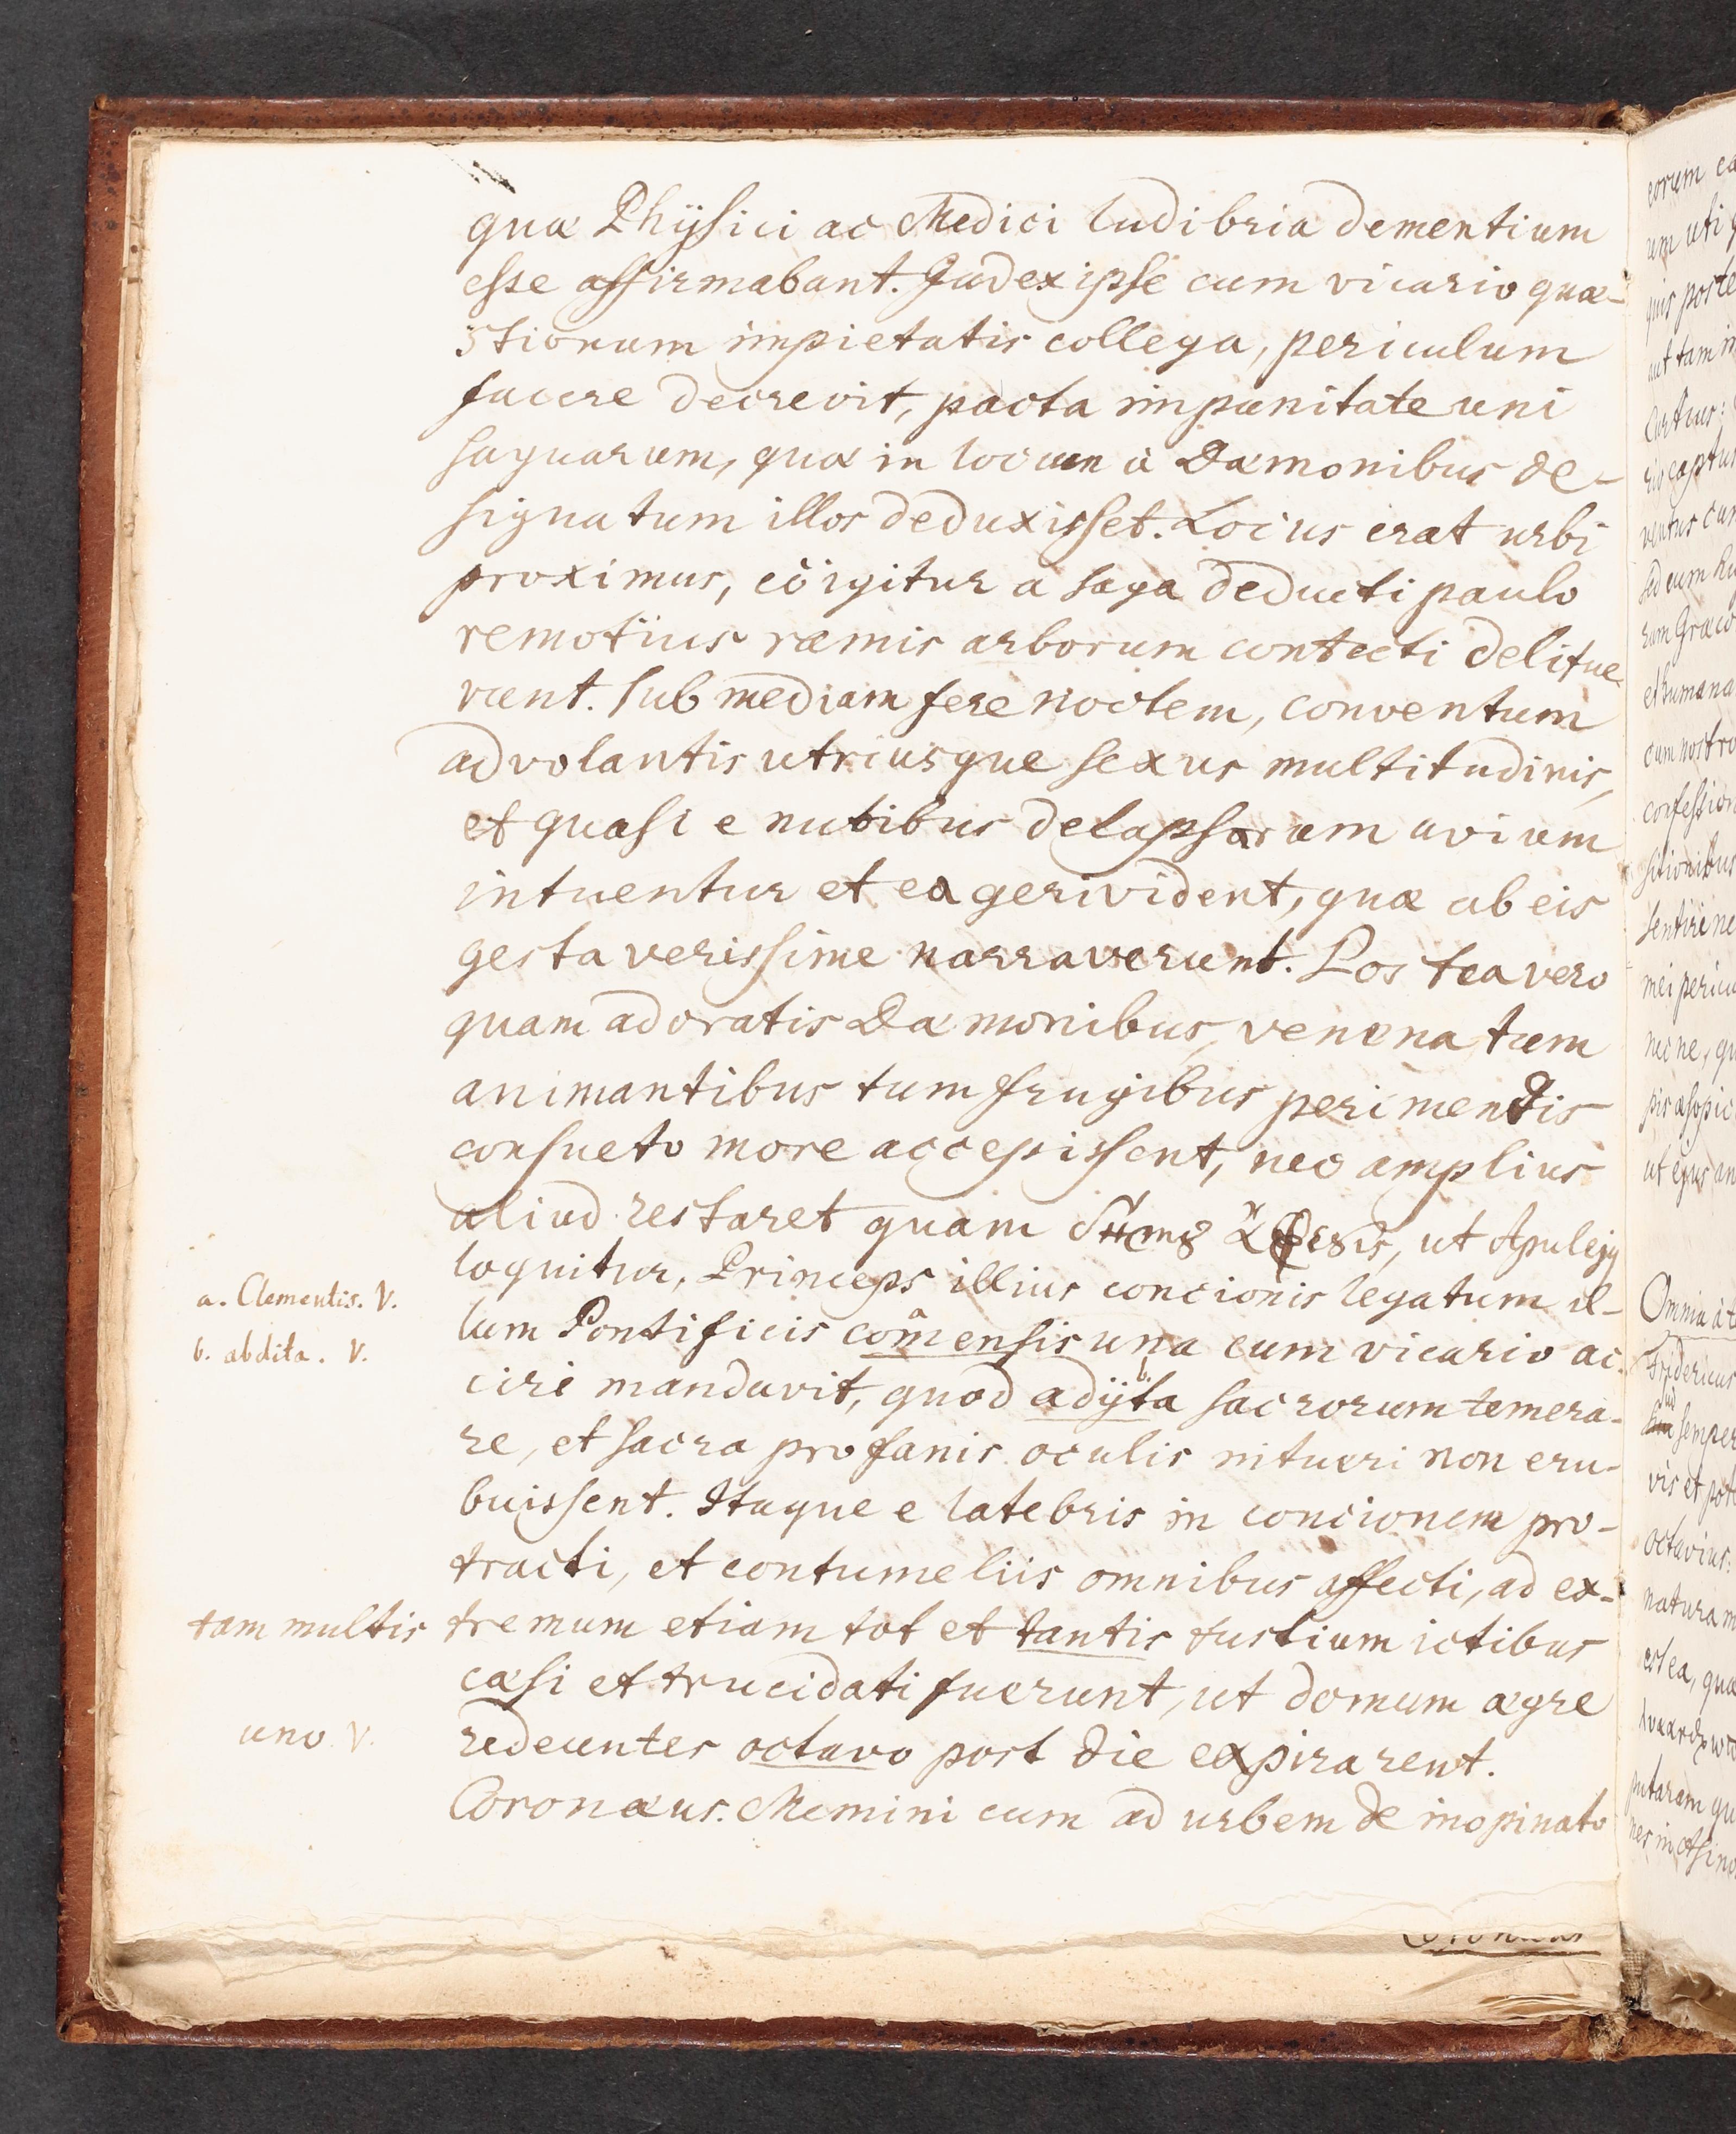 quæ Phÿsici ac Medici ludibria dementium
esse affirmabant. Judex ipse cum vicario quæ-
stionum impietatis collega, periculum
facere decrevit, pacta impunitate uni
sagarum, quæ in locum à Dæmonibus de-
signatum illos deduxisset. Locus erat urbi
proximus, eò igitur a saga deducti paulo
remotius ramis arborum contecti delitue-
runt. Sub mediam fere noctem, conventum
advolantis utriusque sexus multitudinis,
et quasi e nubibus delapsarum avium
intuentur et ea geri vident, quæ ab eis
gesta verissime narraverunt. Postea vero
quam adoratis Dæmonibus, venena tum
animantibus tum frugibus perimendis
consueto more accepissent, nec amplius
aliud restaret quam, ut Apulejus
loquitur, Princeps illius concionis legatum il-
lum Pontificis com̃ensis una cum vicario ac-
ciri mandavit, quod adÿta sacrorum temera-
re, et sacra profanis oculis intueri non eru-
buissent. Itaque e latebris in concionem pro-
tracti, et contumeliis omnibus affecti, ad ex-
tremum etiam tot et tantis fustium ictibus
cæsi et trucidati fuerunt, ut domum ægre
redeuntes octavo post die expirarent.
Coronæus. Memini cum ad urbem de inopinato
Coronæus
a. Clementis. V.
b. abdita. V.
tam multis
uno V.
eorum
um uti
quis poste
aut tam in
Curtius:
ventus cum
sed cum
rum Græco
et humana
cum nostro
confession
sitionibus
sentire ne
mei pericu
nec ne, qu
ut ejus an
Omnia
Fridericus
semper
vis et pot
octavius.
naturam
est ea, quæ
putaram qu
nes in Asino